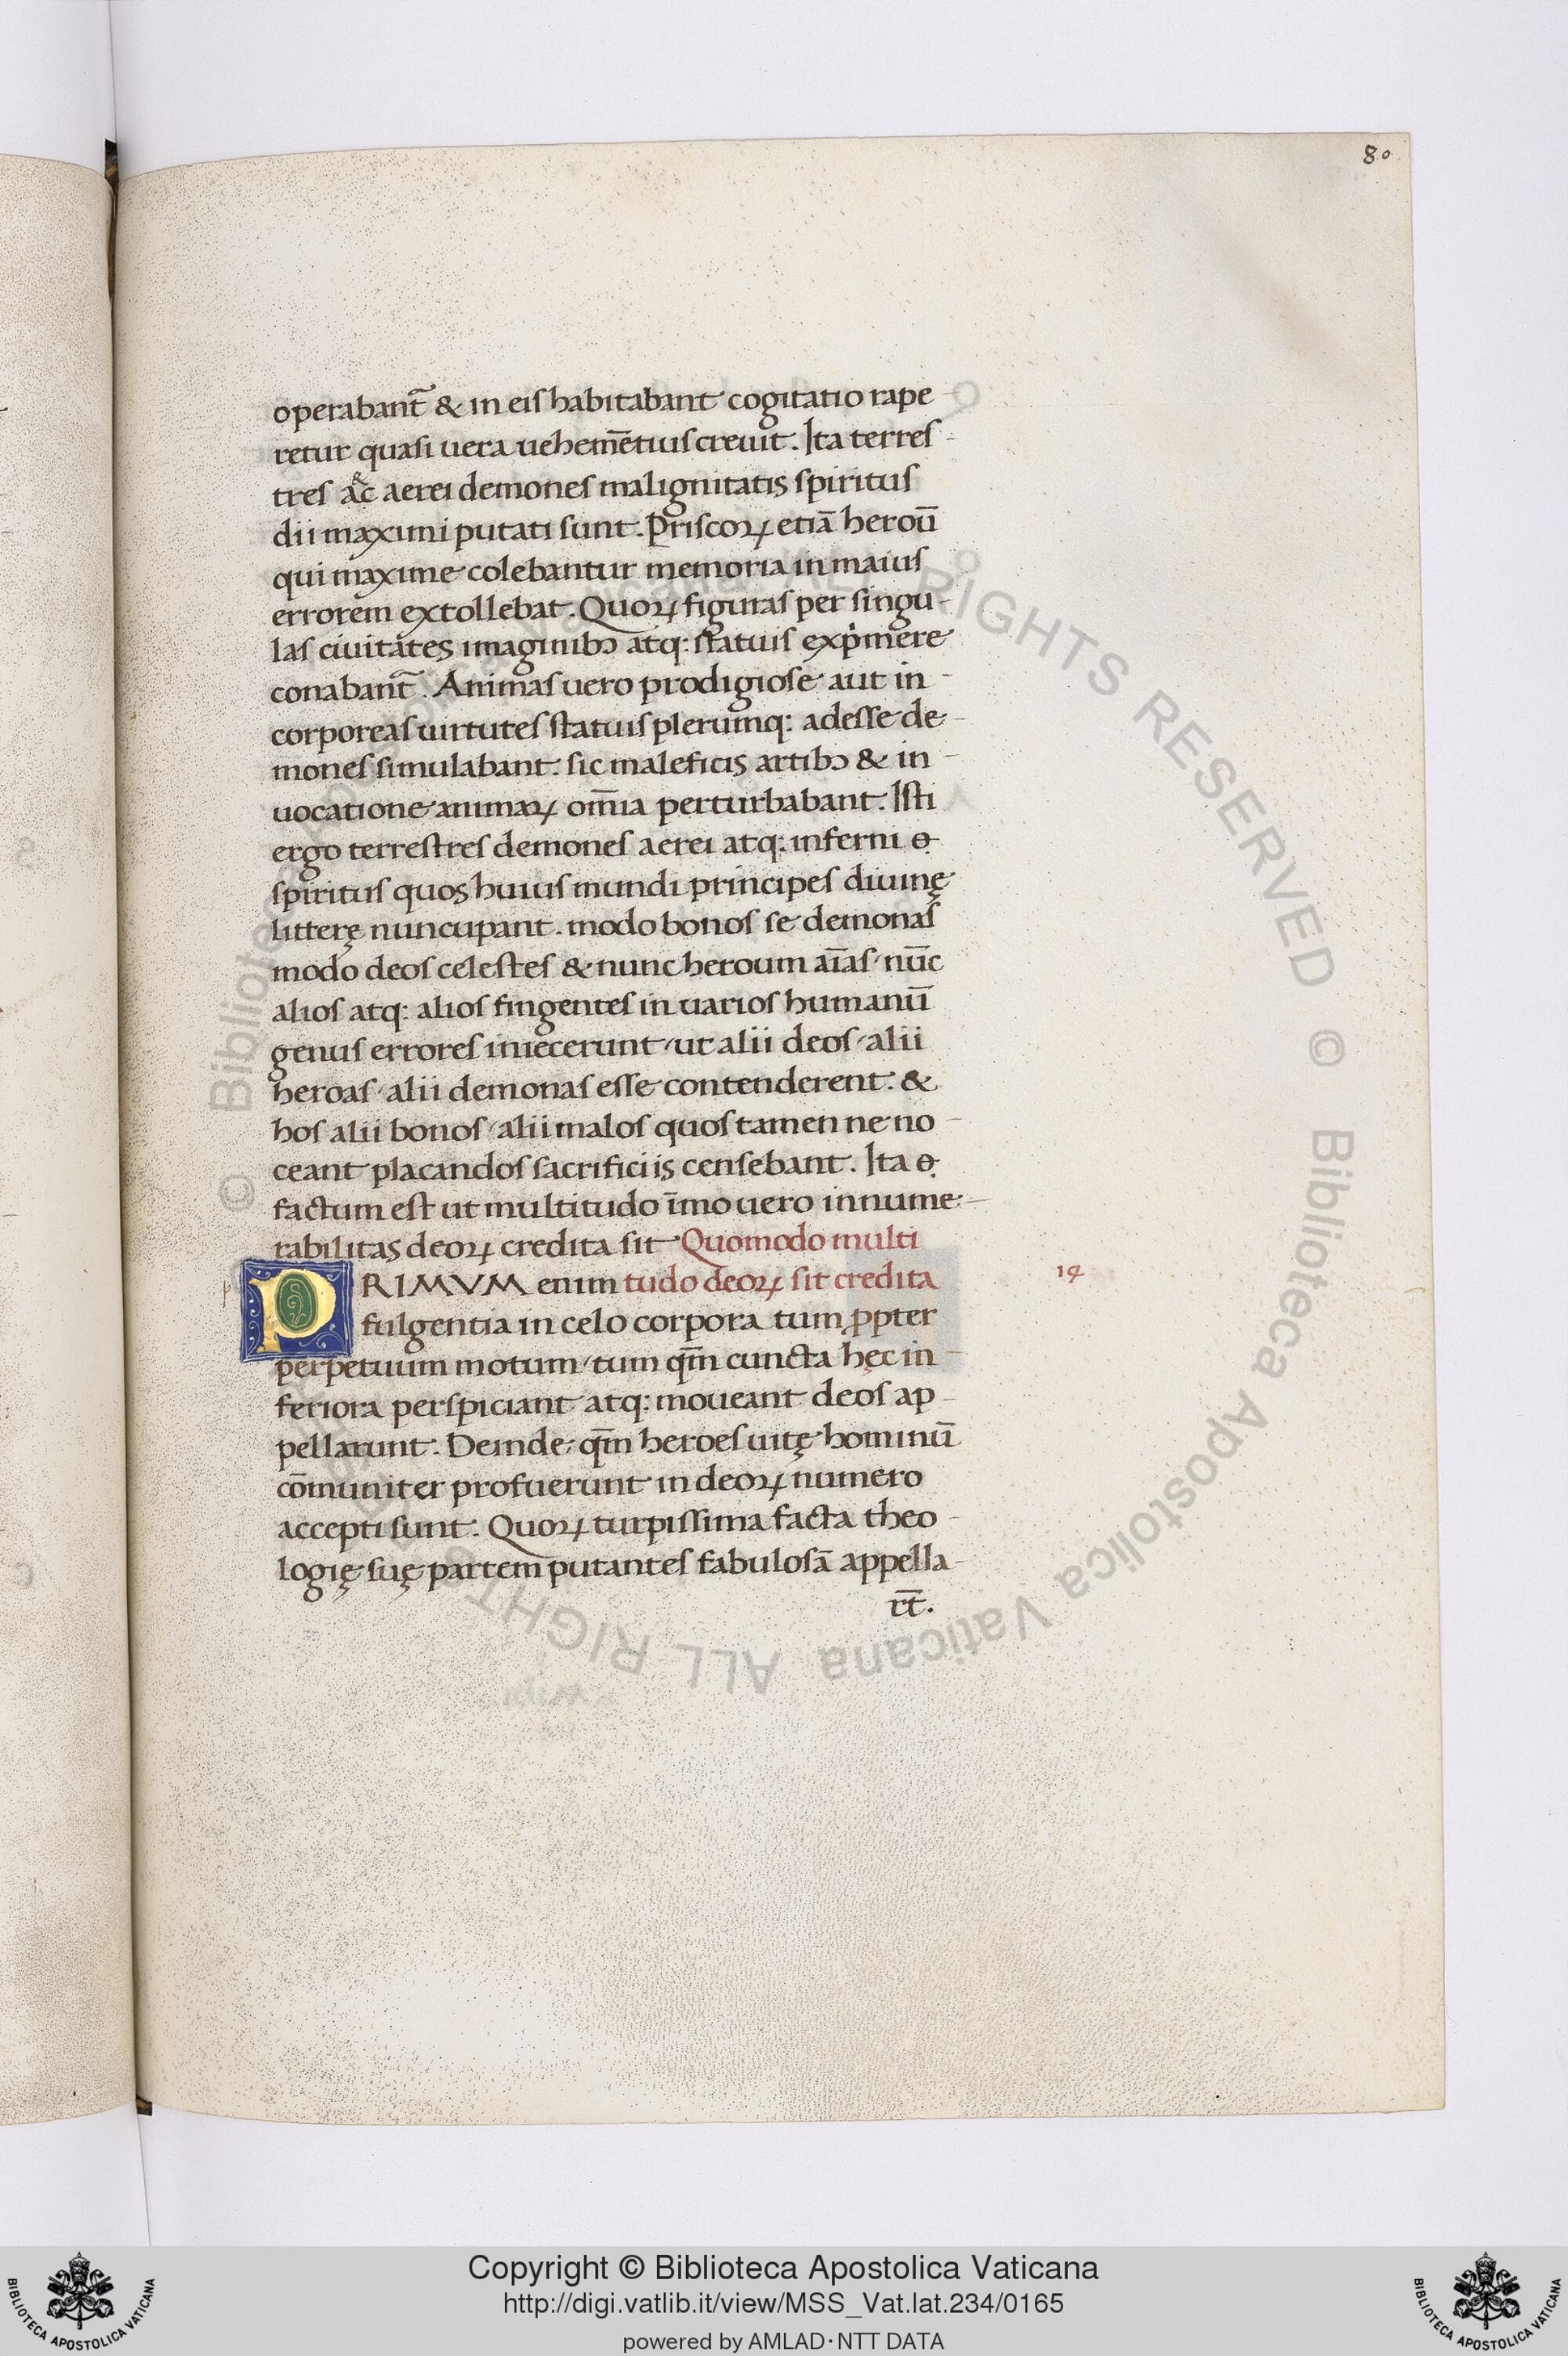 80
operabant̃ & in eis habitabant cogitatio rape
retur quasi uera uehemētius creuit. Ita terres
tres ac aerei demones malignitatis spiritus
dii maximi putati sunt. Priscoꝝ etiā heroū
qui maxime colebantur memoria in maius
errorem extollebat. Quoꝝ figuras per singu
las ciuitates imaginibꝰ atq: statuis exp̍mere
conabant̃. Animas uero prodigiose aut in
corporeas uirtutes statuis plerumq: adesse de
mones simulabant. sic maleficis artibꝰ & in
uocatione animaꝝ om̄ia perturbabant. Isti
ergo terrestres demones aerei atq: inferni
spiritus quos huius mundi principes diuinę
litterę nuncupant. modo bonos se demonas
modo deos celestes & nunc heroum aīas nūc
alios atq: alios fingentes in uarios humanū
genus errores iniecerunt ut alii deos alii
heroas alii demonas esse contenderent. &
hos alii bonos alii malos quos tamen ne no
ceant placandos sacrificiis censebant. Ita
factum est ut multitudo īmo uero innume
rabilitas deoꝝ credita sit Quomodo multi
PRIMVM enim tudo deoꝝ sit credita 14
fulgentia in celo corpora tum ꝓpter
perpetuum motum tum qm̄ cuncta hęc in
feriora perspiciant atq: moueant deos ap
pellarunt. Deinde qm̄ heroes uitę hominū
cōmuniter profuerunt in deoꝝ numero
accepti sunt. Quoꝝ turpissima facta theo
logię suę partem putantes fabulosā appella
rt̄.
© Biblioteca Apostolica Vaticana ALL RIGHTS RESERVED © Biblioteca Apostolica Vaticana ALL RIGHTS
BIBLIOTECA APOSTOLICA VATICANA
Copyright © Biblioteca Apostolica Vaticana
http://digi.vatlib.it/view/MSS_Vat.lat.234/0165
powered by AMLAD·NTT DATA
BIBLIOTECA APOSTOLICA VATICANA